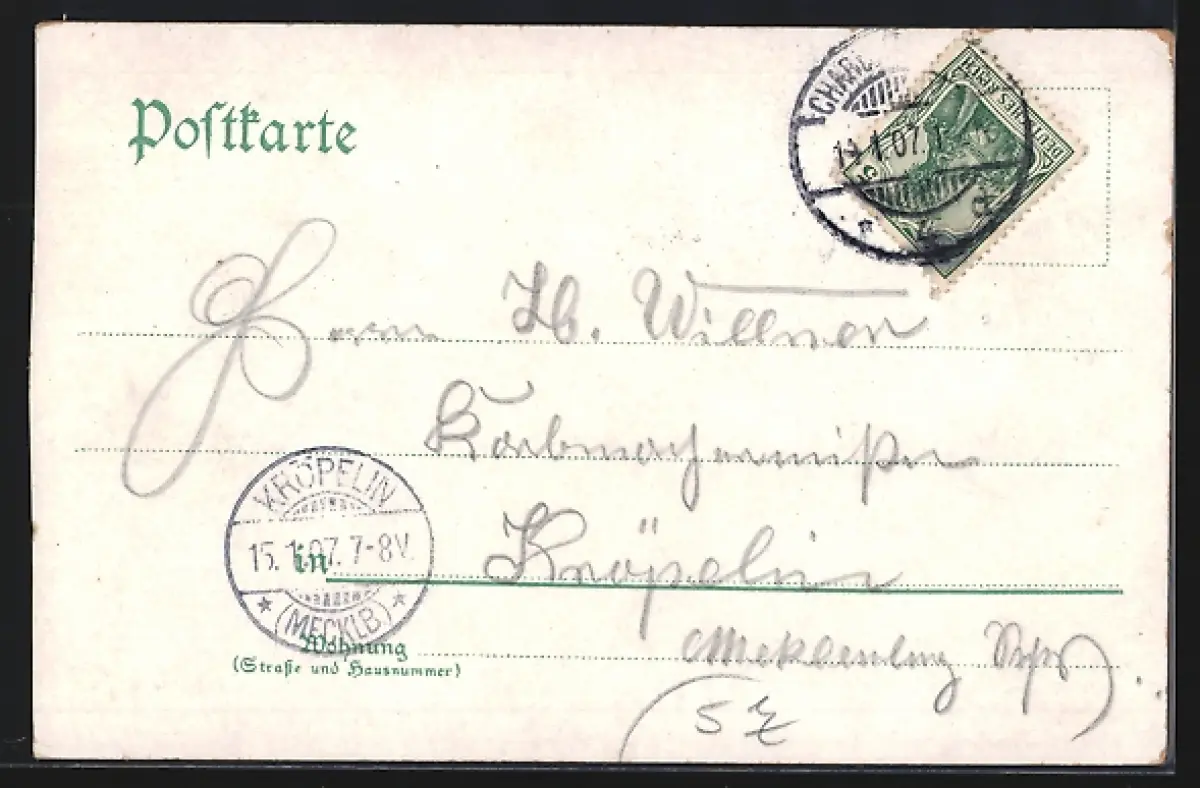 Postkarte
CHARL
1 07 1
DEUTSCHES REICH
Herrn H. Willner
Korbmachermister
KRÖPELIN
15.1.07. 7-8V.
(MECKLB.)
in Kröpelin
Wohnung
(Straße und Hausnummer)
Meklenburg
5